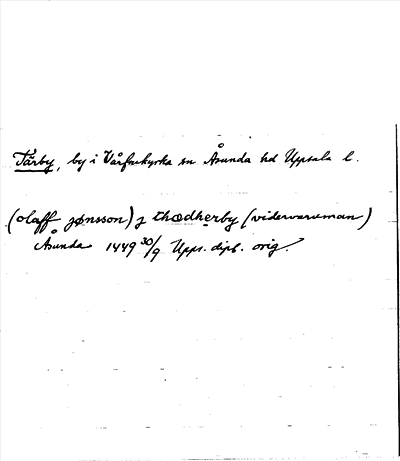 Tärby, by i Vårfrukyrka sn Åsunda hd Uppsala l.
(olaff jønsson) j thædherby (vidervaruman)
Åsunda 1449 30/9 Upps. dipl. orig.